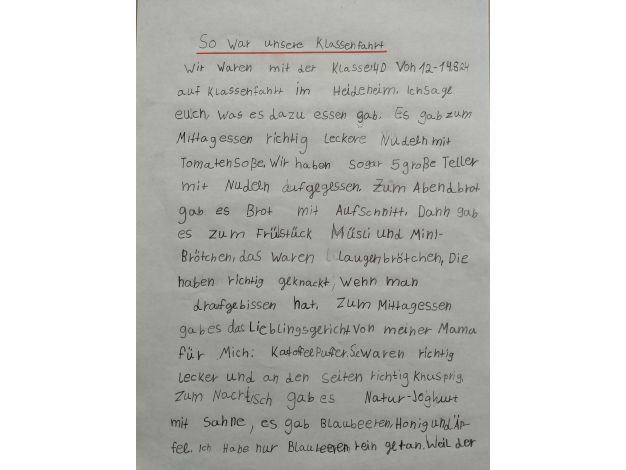 So war unsere Klassenfahrt
Wir waren mit der Klasse4D Von 12-14.8.24
auf Klassenfahrt im Heideheim. Ich sage
euch, was es dazu essen gab. Es gab zum
Mittagessen richtig leckere Nudeln mit
Tomatensoße. Wir haben sogar 5 große Teller
mit Nudeln aufgegessen. Zum Abendbrot
gab es Brot mit Aufschnitt. Dann gab
es zum Frülstück Müsli und Mini-
Brötchen, das waren Laugenbrötchen, Die
haben richtig geknackt, wenn man
draufgebissen hat. Zum Mittagessen
gab es das Lieblingsgericht von meiner Mama
für Mich: Katofelpuffer. Se waren richtig
lecker und an den seiten richtig knusprig.
Zum Nachtisch gab es Natur-Joghurt
mit Sahne, es gab Blaubeeren, Honig und Äp-
fel. Ich Habe nur Blaubeeren rein getan. Weil der